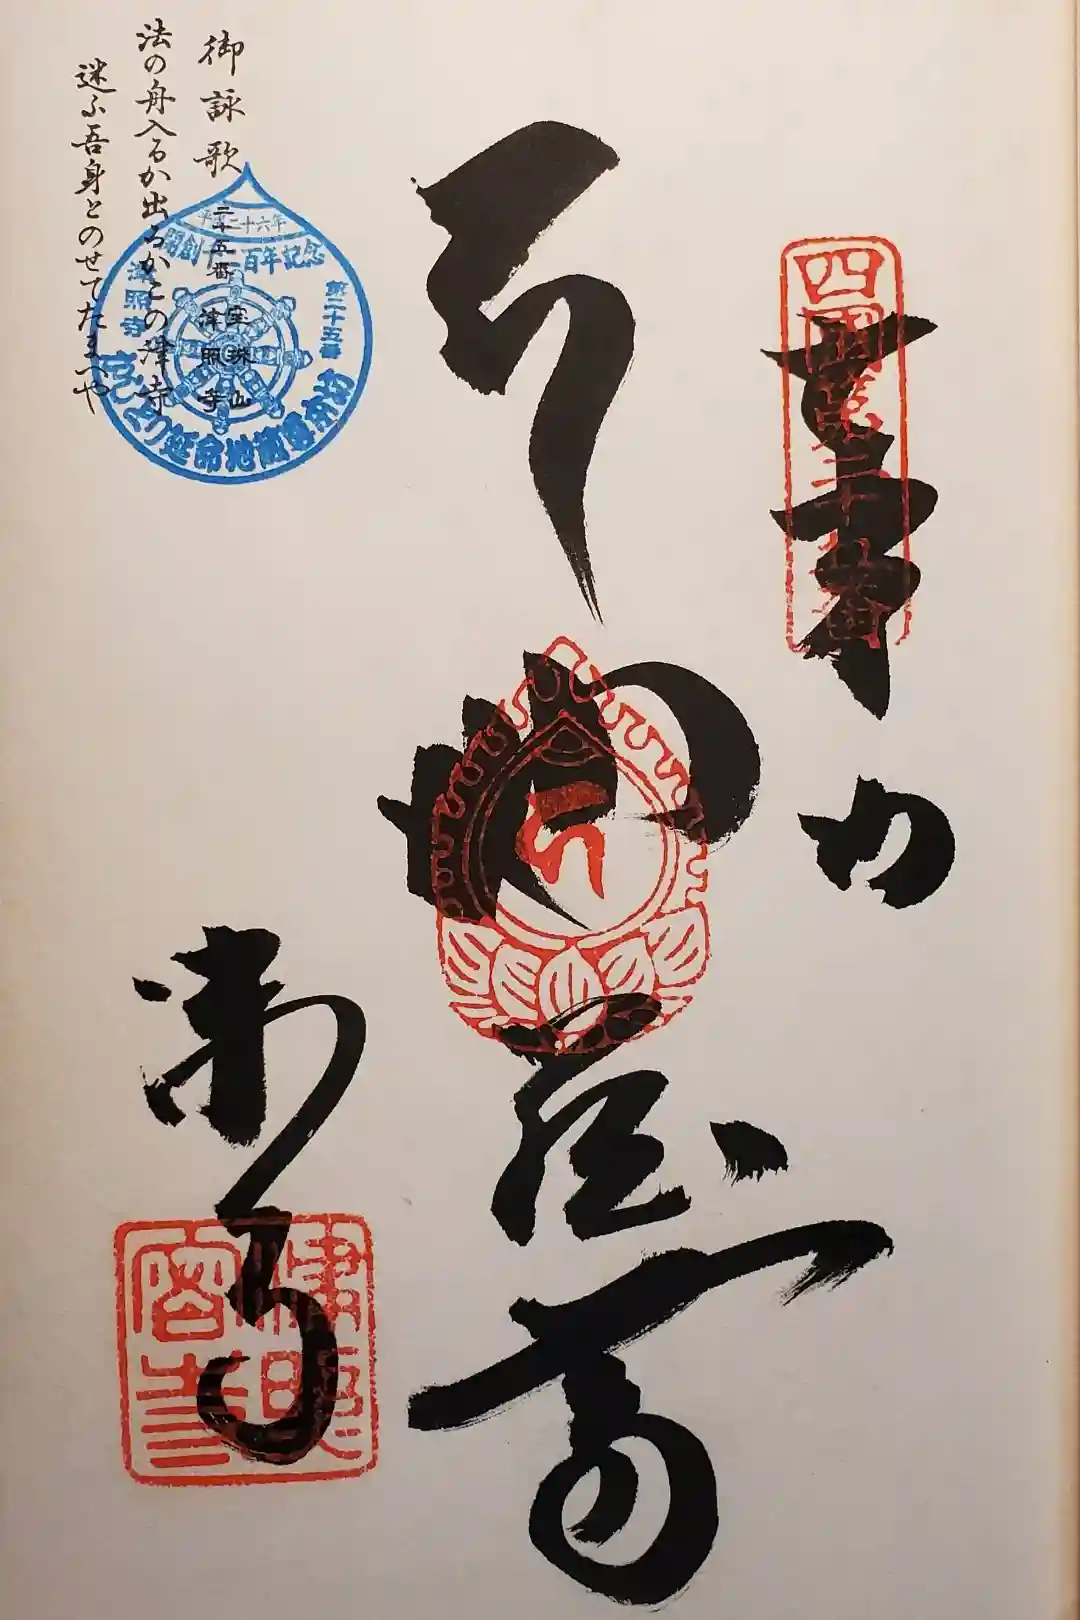 四国第二十五番
奉
地蔵
津寺
御詠歌
法の舟入るか出るかこの津寺
迷ふ吾身とのせてたまへや
二十五番
宝珠山
津照寺
平成二十六年
開創千二百年記念
第二十五番
津照寺
かじとり延命地蔵尊